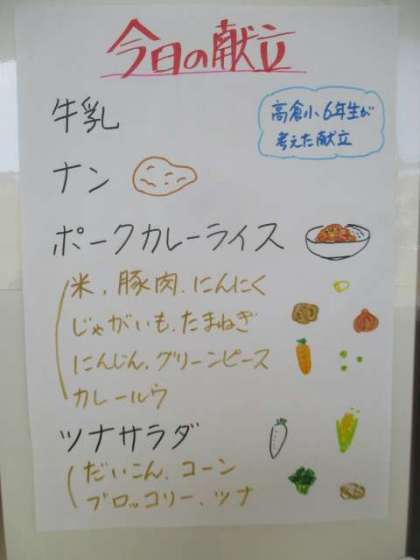 今日の献立
高倉小6年生が
考えた献立
牛乳
ナン
ポークカレーライス
米、豚肉、にんにく
じゃがいも、たまねぎ
にんじん、グリーンピース
カレールウ
ツナサラダ
だいこん、コーン
ブロッコリー、ツナ